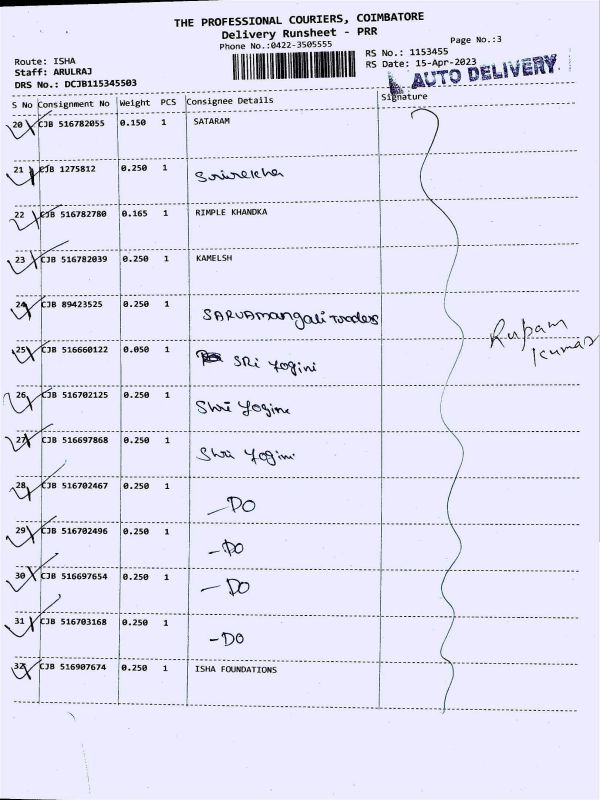 THE PROFESSIONAL COURIERS, COIMBATORE
Delivery Runsheet - PRR
Phone No.:0422-3505555
Page No.:3
Route: ISHA
RS No.: 1153455
Staff: ARULRAJ
RS Date: 15-Apr-2023
DRS No.: DCJB115345503
AUTO DELIVERY
S No Consignment No Weight PCS Consignee Details Signature
20 CJB 516782055 0.150 1 SATARAM
21 CJB 1275812 0.250 1 Srirekha
22 CJB 516782780 0.165 1 RIMPLE KHANDKA
23 CJB 516782039 0.250 1 KAMELSH
24 CJB 89423525 0.250 1 SARVAmangali Traders
Rupam
Kumar
25 CJB 516660122 0.050 1 SRi Yogini
26 CJB 516702125 0.250 1 Shri Yogini
27 CJB 516697868 0.250 1 Shri Yogini
28 CJB 516702467 0.250 1 -DO
29 CJB 516702496 0.250 1 -DO
30 CJB 516697654 0.250 1 -DO
31 CJB 516703168 0.250 1 -DO
32 CJB 516907674 0.250 1 ISHA FOUNDATIONS